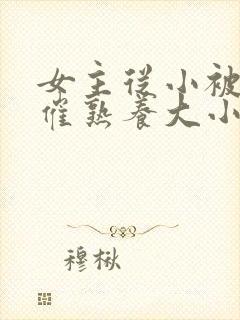 女主从小被
催熟养大小
穆楸